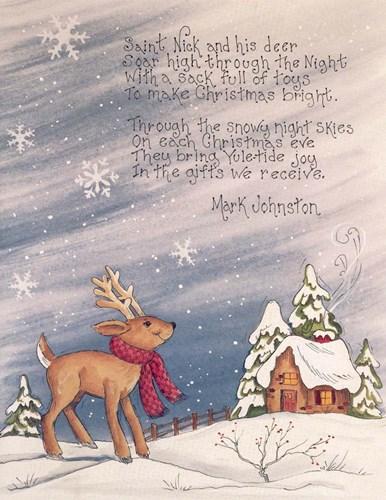 Saint Nick and his deer
Soar high through the Night
With a sack full of toys
To make Christmas bright.
Through the snowy night skies
On each Christmas eve
They bring Yuletide joy
In the gifts we receive.
Mark Johnston